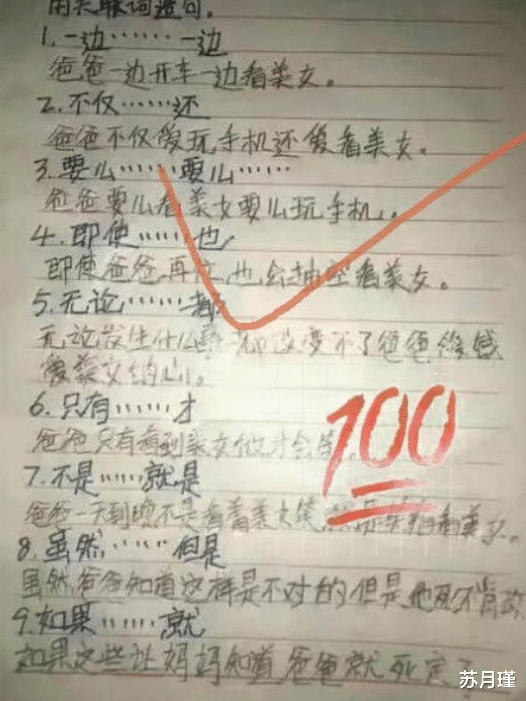 用关联词造句。
1.一边……一边
爸爸一边开车一边看美女。
2.不仅……还
爸爸不仅爱玩手机还爱看美女。
3.要么……要么……
爸爸要么看美女要么玩手机。
4.即使……也
即使爸爸再忙,也会抽空看美女。
5.无论……都
无论发生什么事都改变不了爸爸爱钱
爱美女的心。
6.只有……才
爸爸只有看到美女他才会笑
100
7.不是……就是
爸爸一天到晚不是看着美女笑,就是 看美女。
8.虽然……但是
虽然爸爸知道这样是不对的但是他死不肯改
9.如果……就
如果这些让妈妈知道爸爸就死定了
苏月瑾